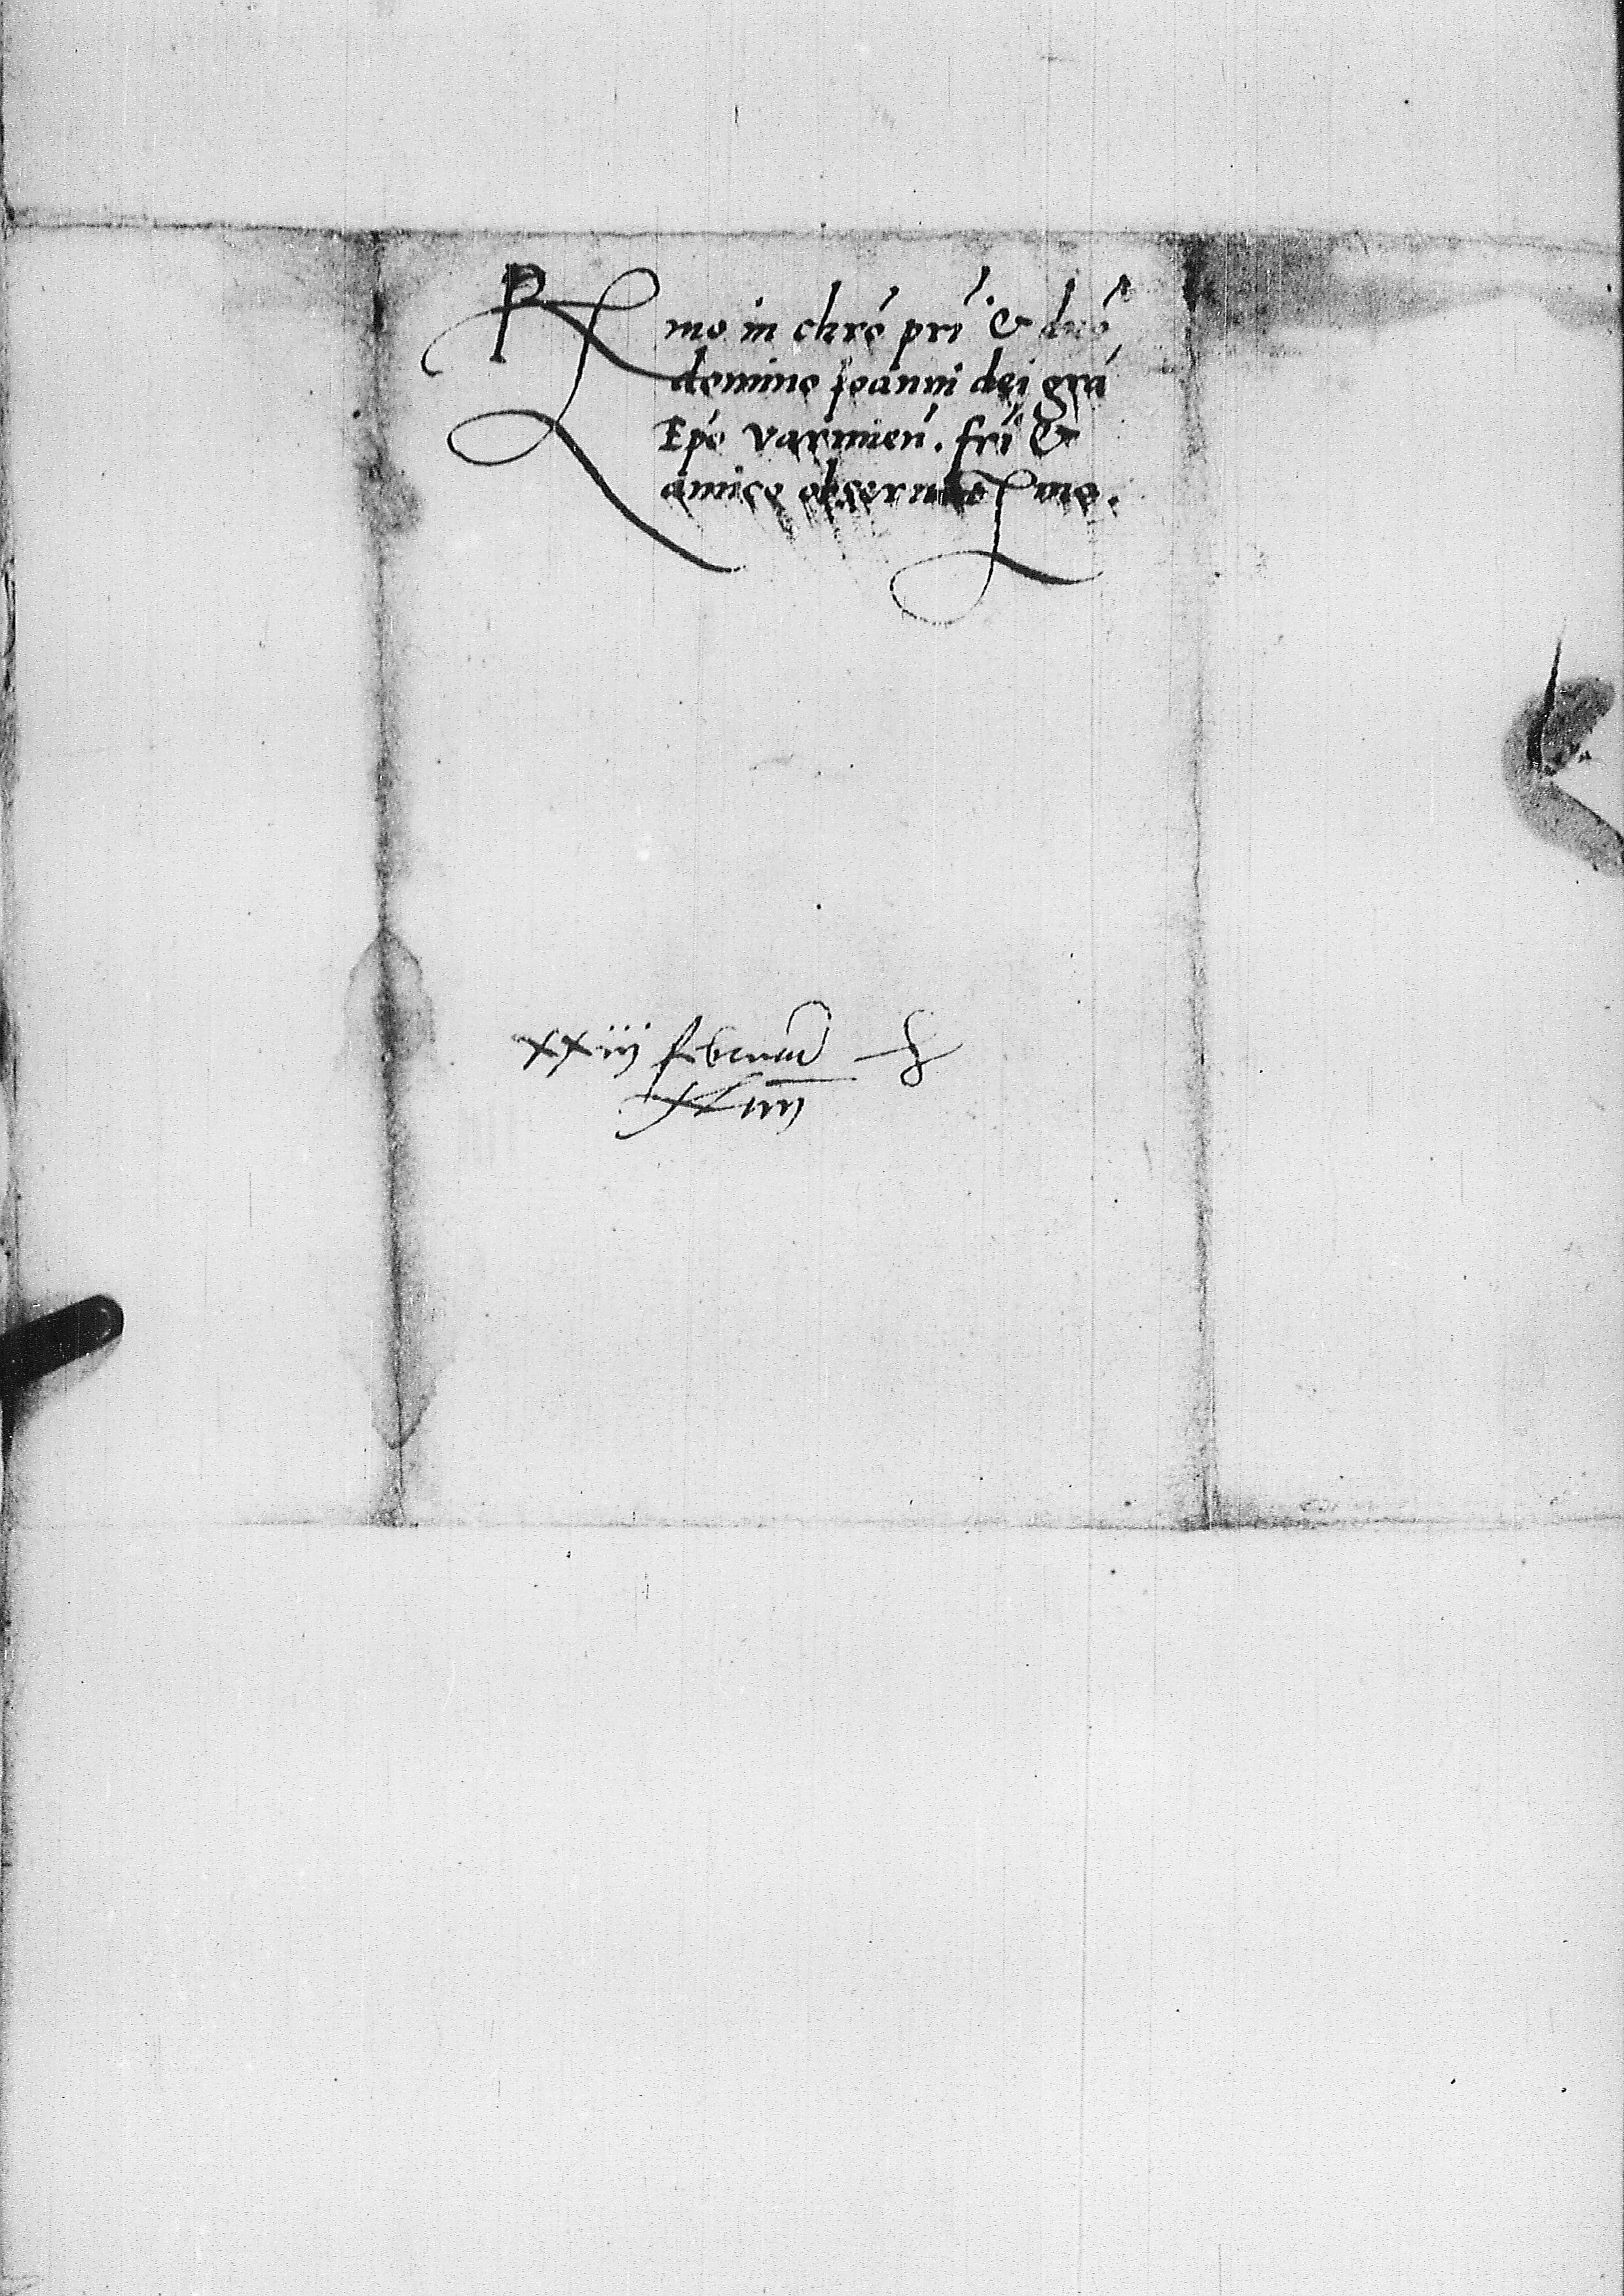 Rmo in chro pri & dno
domino Joanni dei gra
Epo varmien. fri &
amico obseruan mo.
xxiij februarii
xliiij